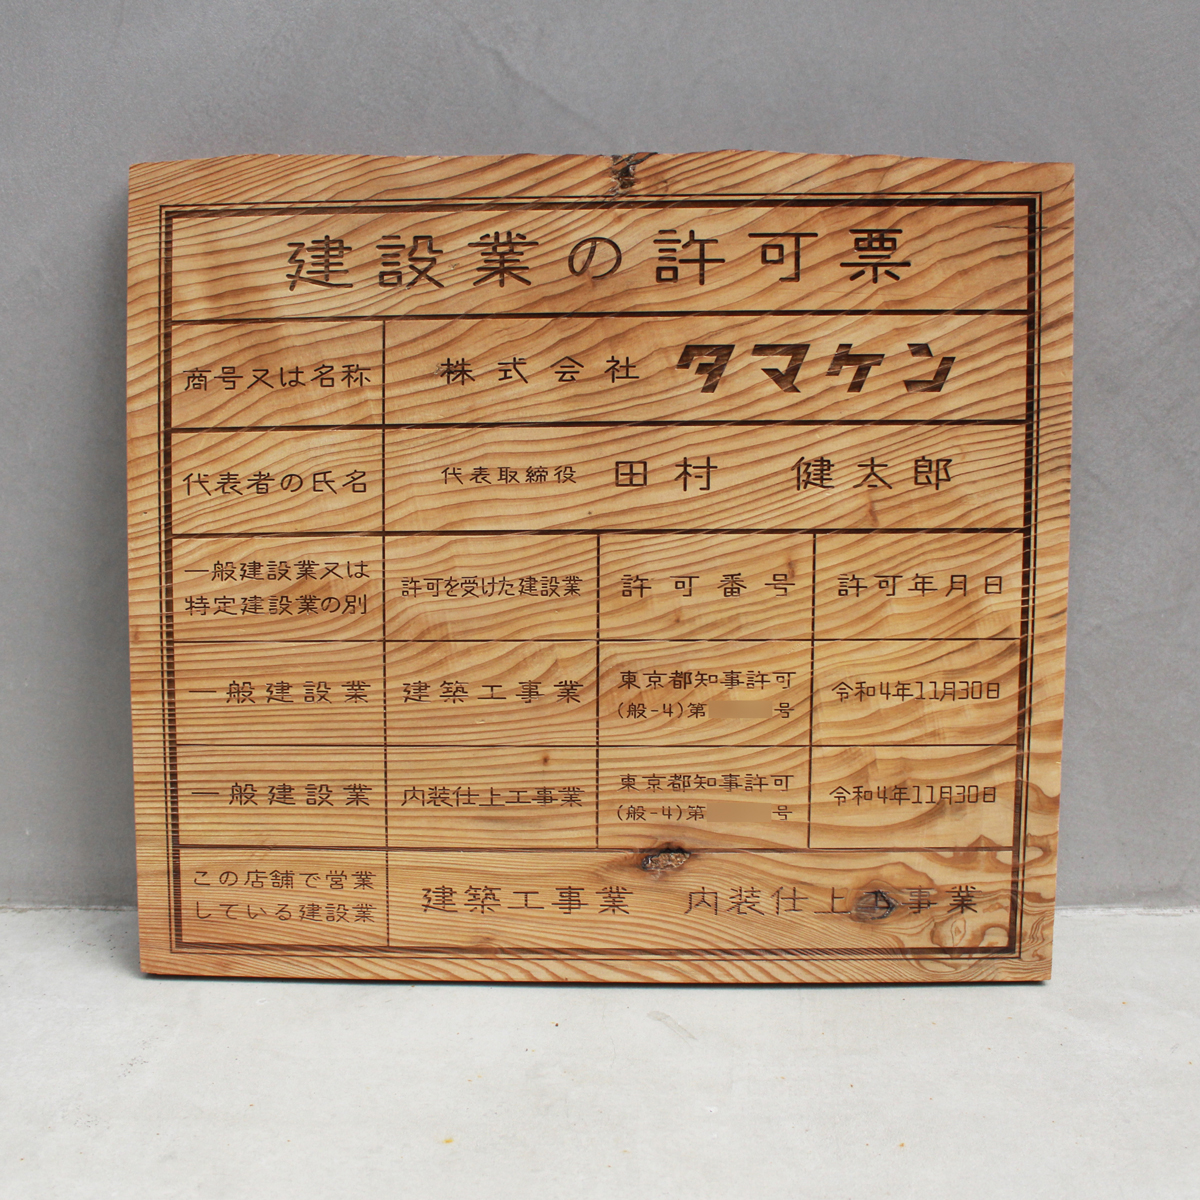 建設業の許可票
商号又は名称
株式会社 タマケン
代表者の氏名
代表取締役 田村 健太郎
一般建設業又は
特定建設業の別
許可を受けた建設業
許可番号
許可年月日
一般建設業
建築工事業
東京都知事許可
(般-4)第 号
令和4年11月30日
一般建設業
内装仕上工事業
東京都知事許可
(般-4)第 号
令和4年11月30日
この店舗で営業
している建設業
建築工事業 内装仕上工事業